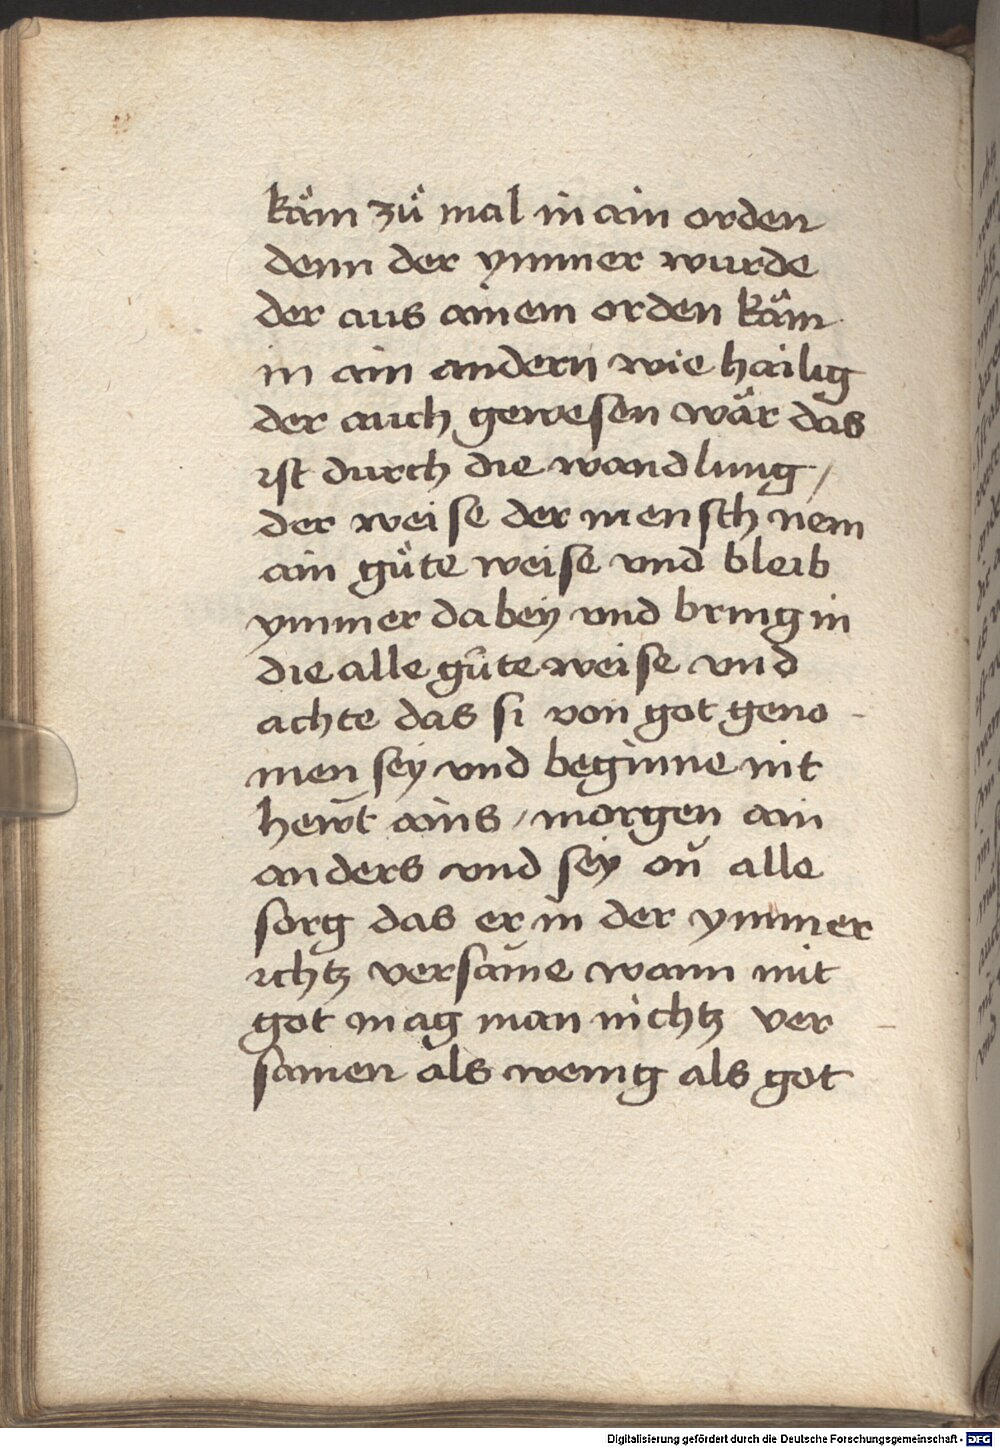 käm zů mal in ain orden
denn der ymmer wurde
der aus ainem orden käm
in ain andern wie hailig
der auch gewesen wär das
ist durch die wandlung /
der weise der mensch nem
ain gůte weise vnd bleib
ymmer da bey vnd bring in
die alle gůte weise vnd
achte das si von got geno -
men sey vnd beginne nit
hewt ains / morgen ain
anders vnd sey on alle
sorg das er in der ymmer
ichtz versaume wann mit
got mag man nichtz ver
samen als wenig als got
Digitalisierung gefördert durch die Deutsche Forschungsgemeinschaft - DFG